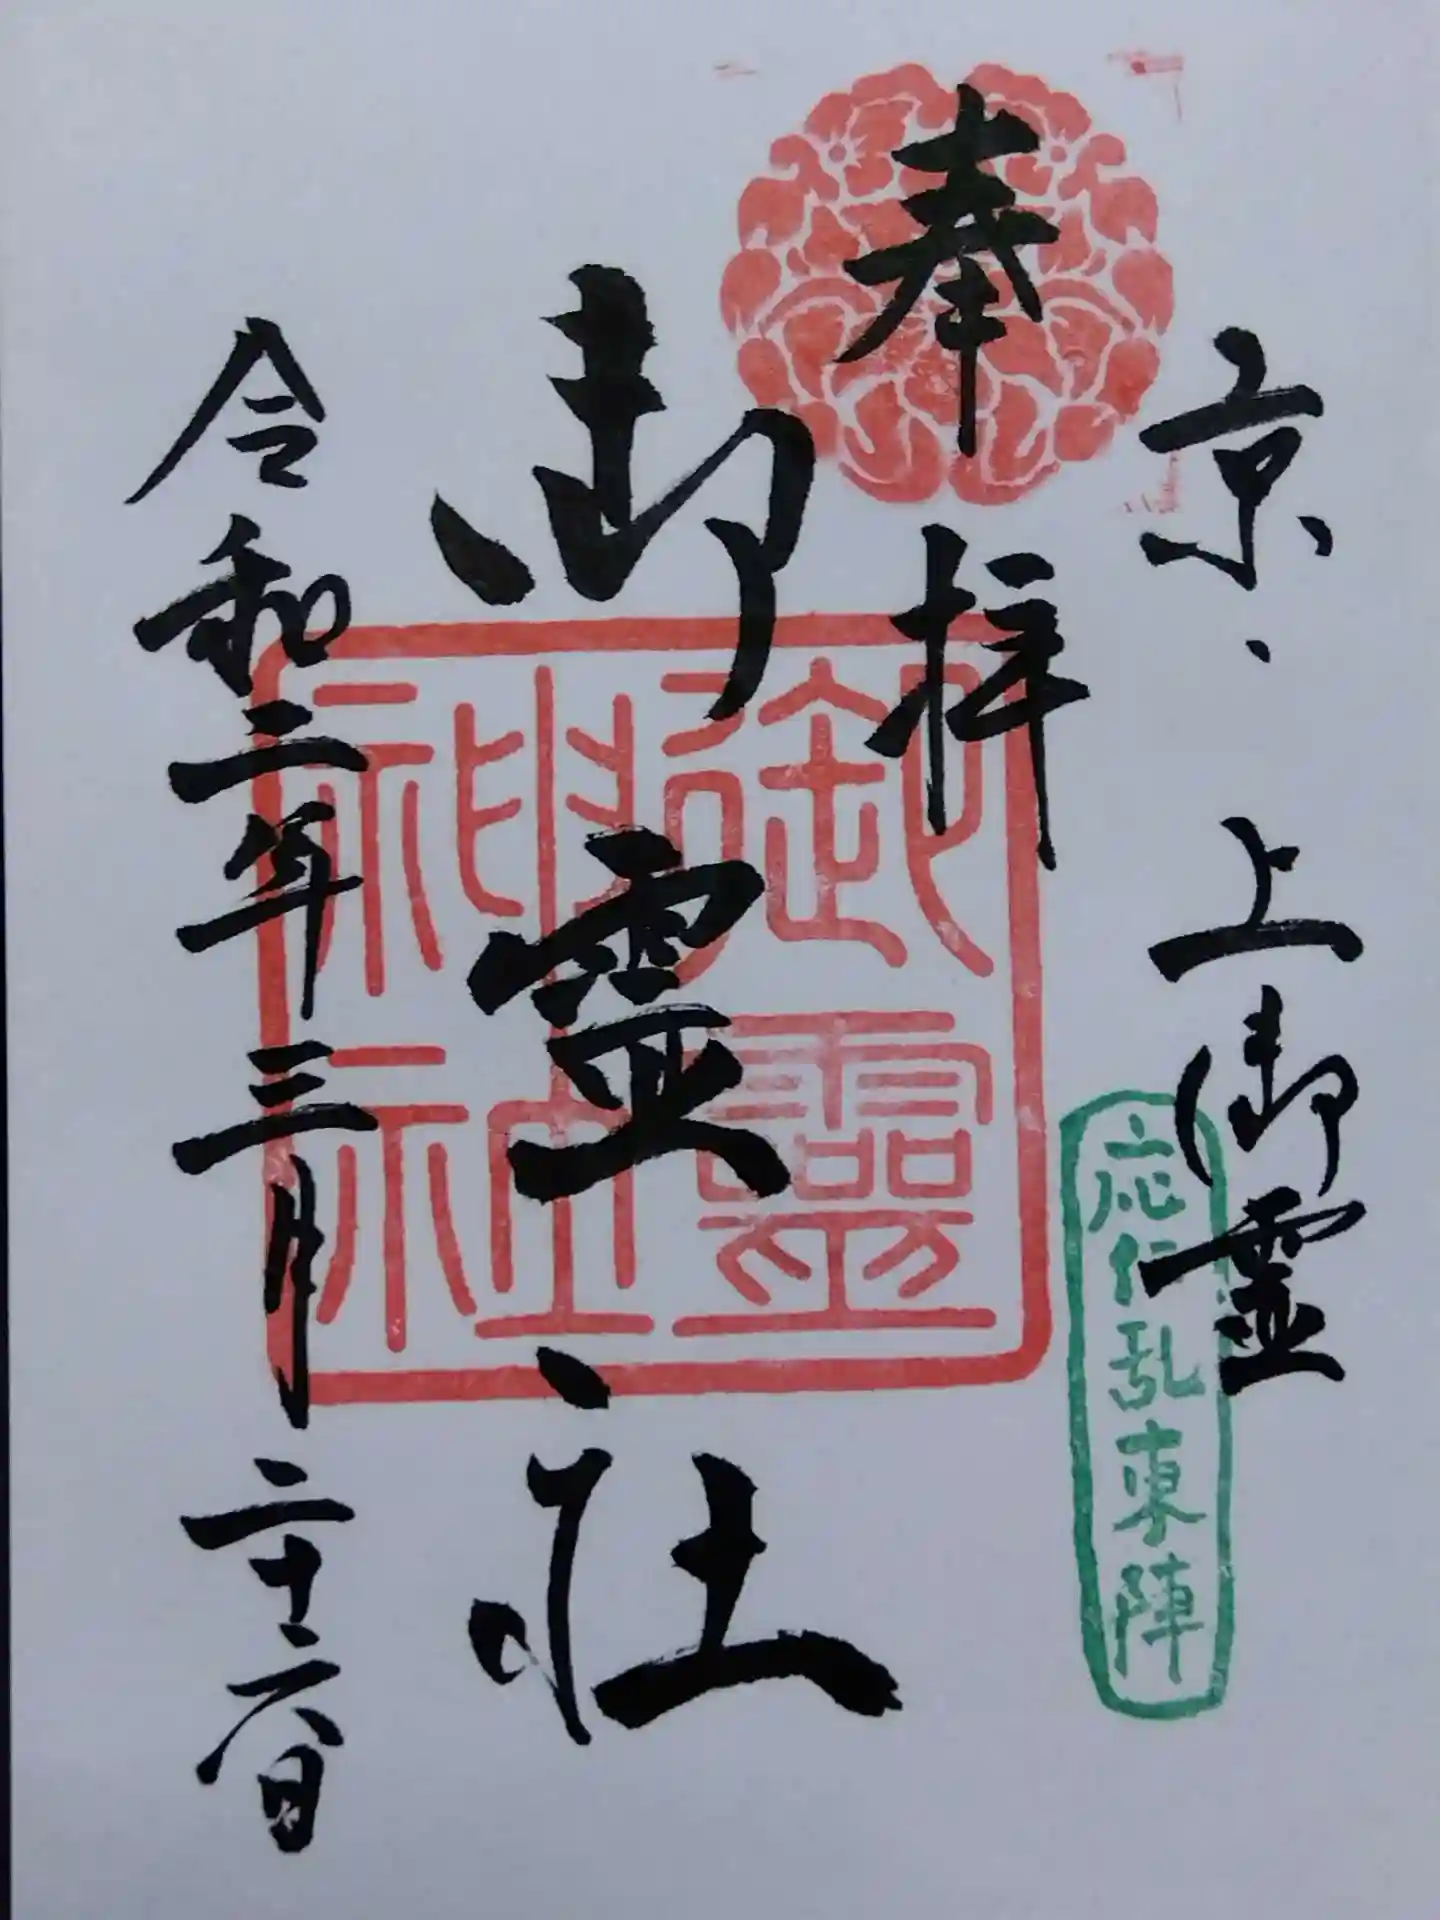 京・上御霊
奉拝
御霊社
令和二年三月二十六日
御靈
神社
応仁乱東陣